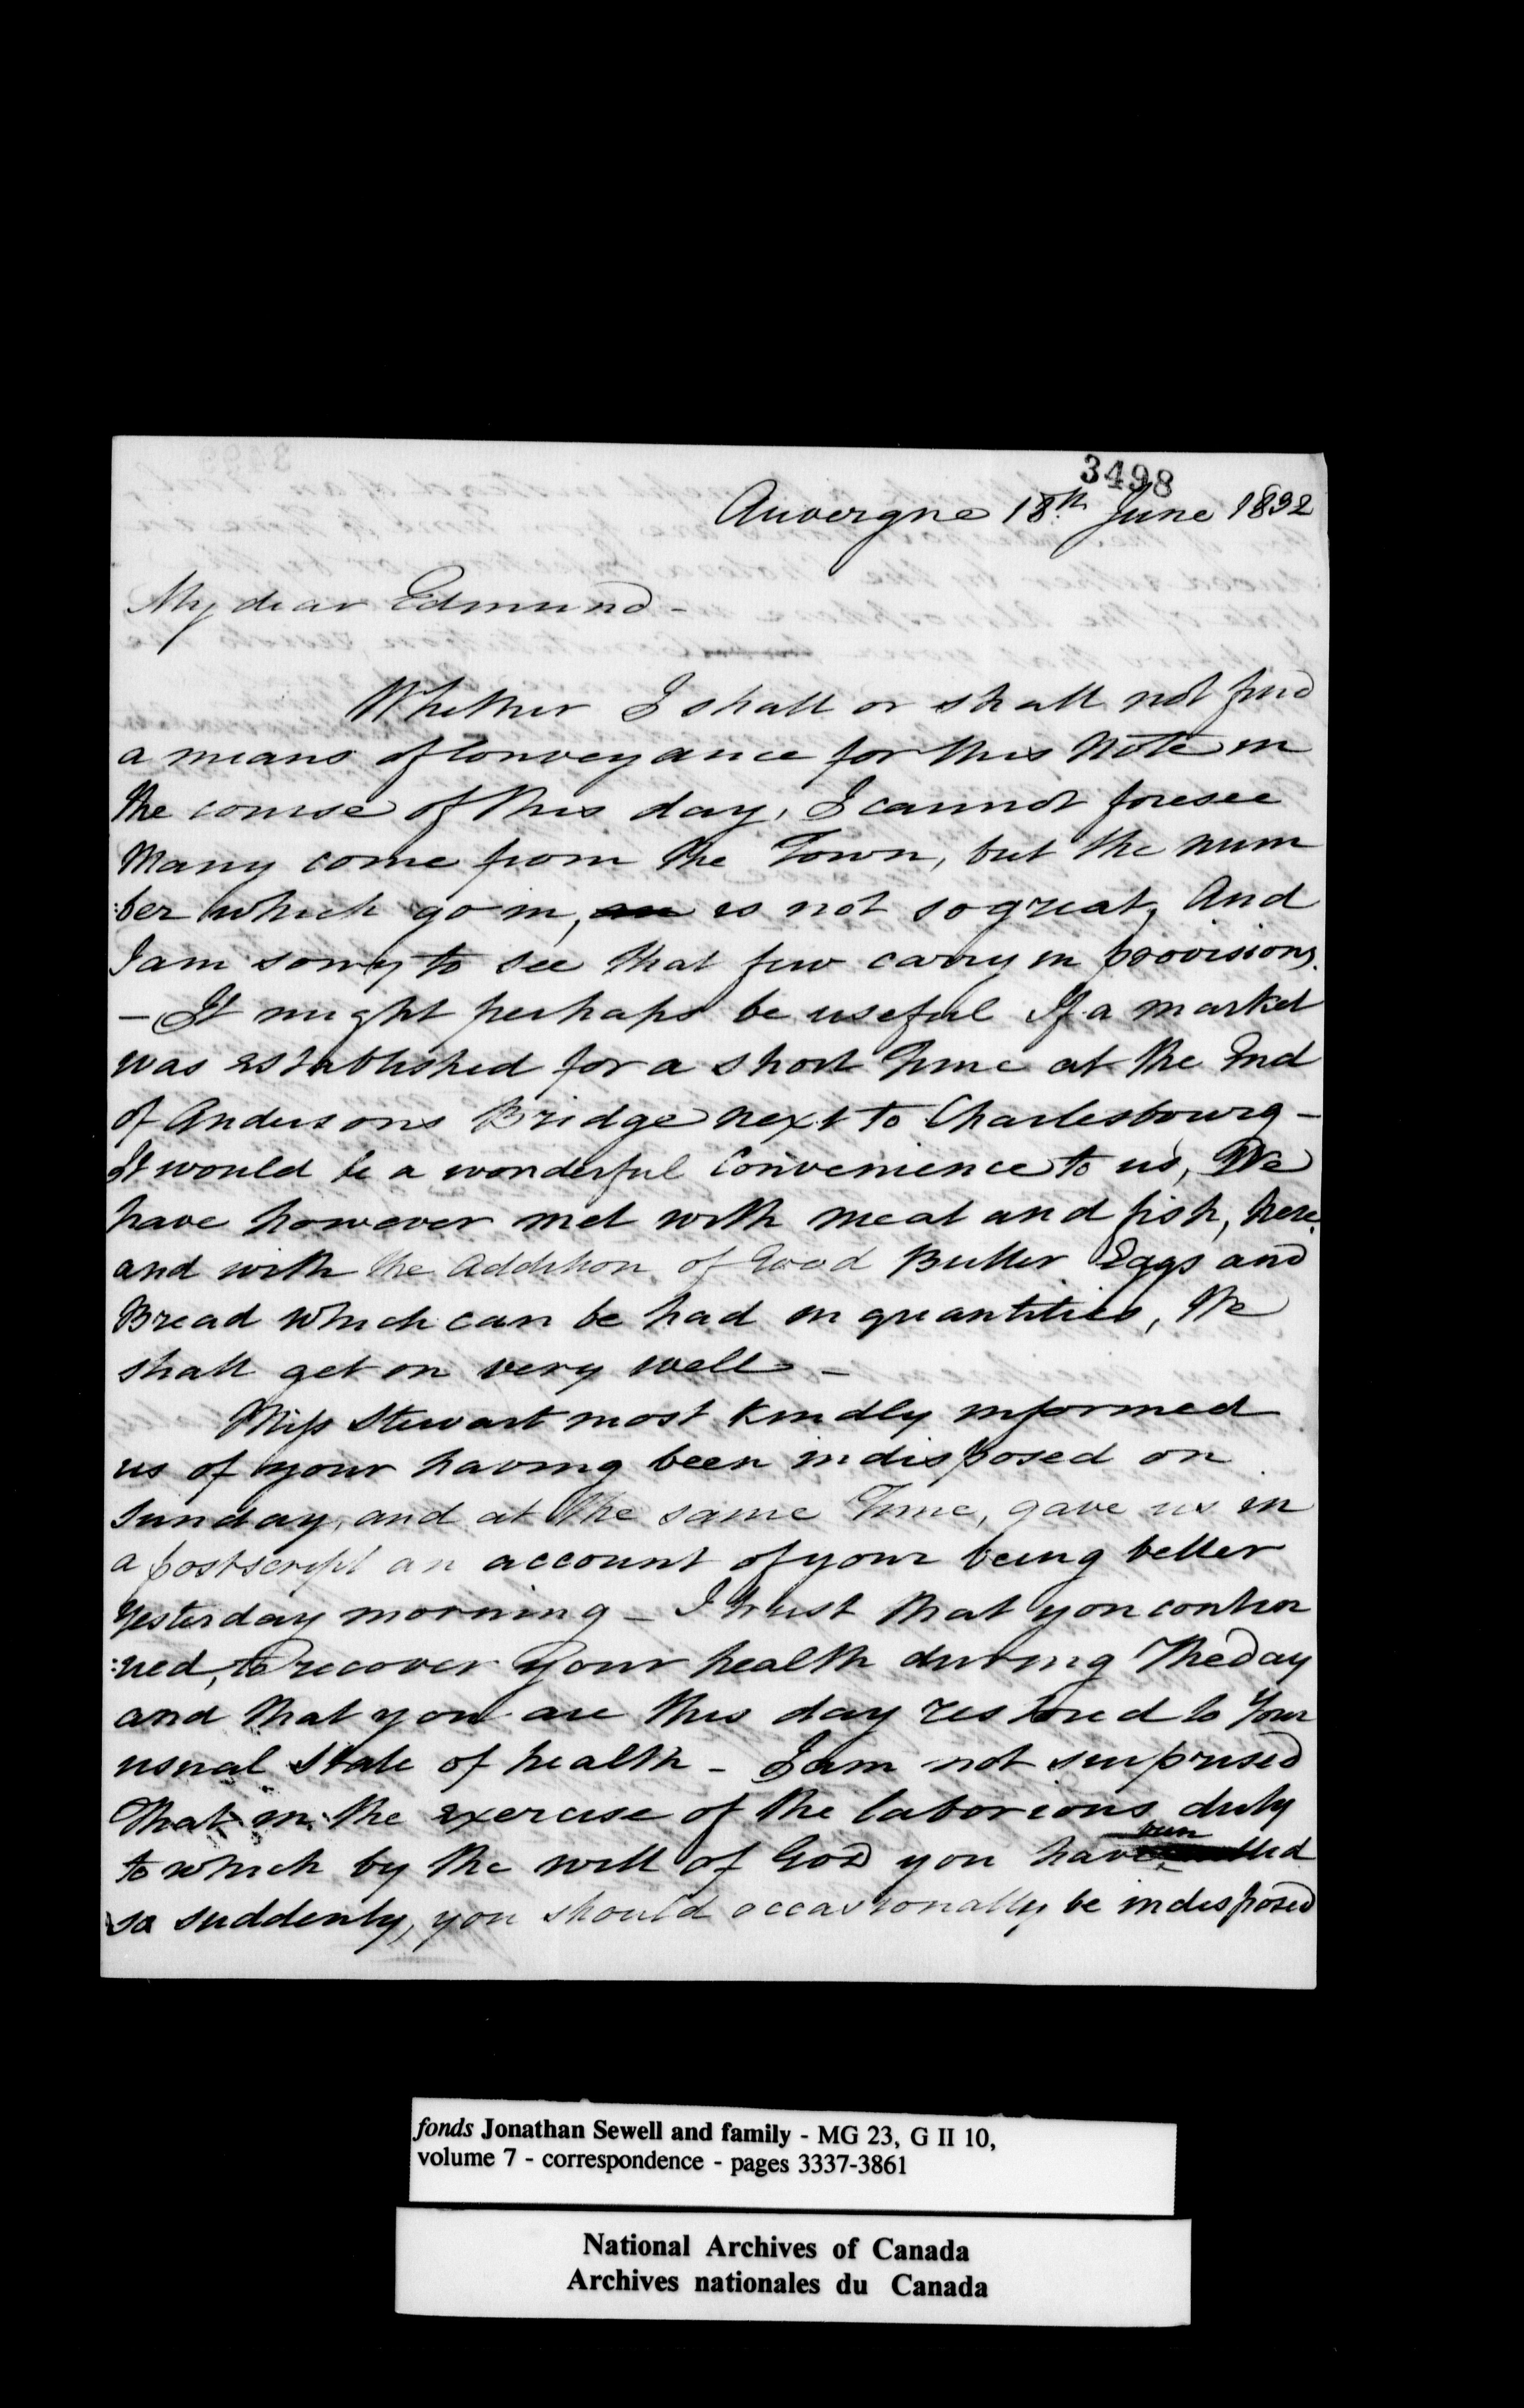 3498
Auvergne 18th June 1832
My dear Edmund -
Whether I shall or shall not find
a means of Conveyance for this Note in
the course of this day, I cannot foresee
Many come from the Town, but the num
:ber which go in, is not so great, And
I am sorry to see that few carry in provisions.
- It might perhaps be useful If a market
was established for a short Time at the End
of Andersons Bridge next to Charlesbourg -
It would be a wonderful Convenience to us, We
have however met with meat and fish, here,
and with the Addition of Good Butter Eggs and
Bread which can be had in quantities, We
shall get on very well -
Miss Stewart most kindly informed
us of your having been indisposed on
Sunday, and at the same Time, gave us in
a postscript an account of your being better
Yesterday morning - I trust that you contin
:ued, to recover your health during The Day
and that you are this day restored to Your
usual State of health - I am not surprised
That in the exercise of the laborious duty
to which by the will of God you have been called
so suddenly, you should occasionally be indisposed
fonds Jonathan Sewell and family - MG 23, G II 10,
volume 7 - correspondence - pages 3337-3861
National Archives of Canada
Archives nationales du Canada